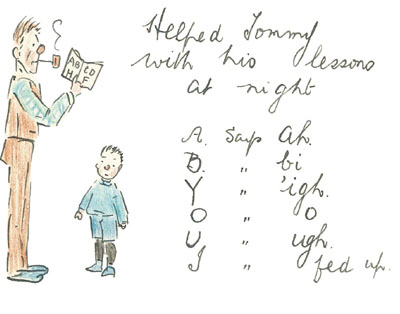 Helped Tommy
with his lessons
at night
ABCD
H F
A. Says Ah.
B. " bi
Y " 'igh.
O " O
U " ugh.
I " fed up.